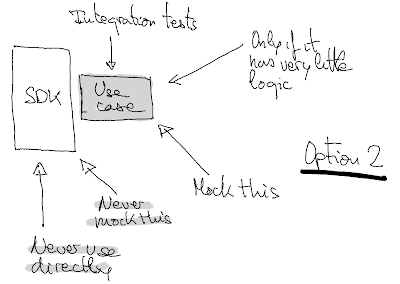 Integration tests
Only if it
has very little
logic
SDK
Use
case
Option 2
Mock this
Never
mock this
Never use
directly